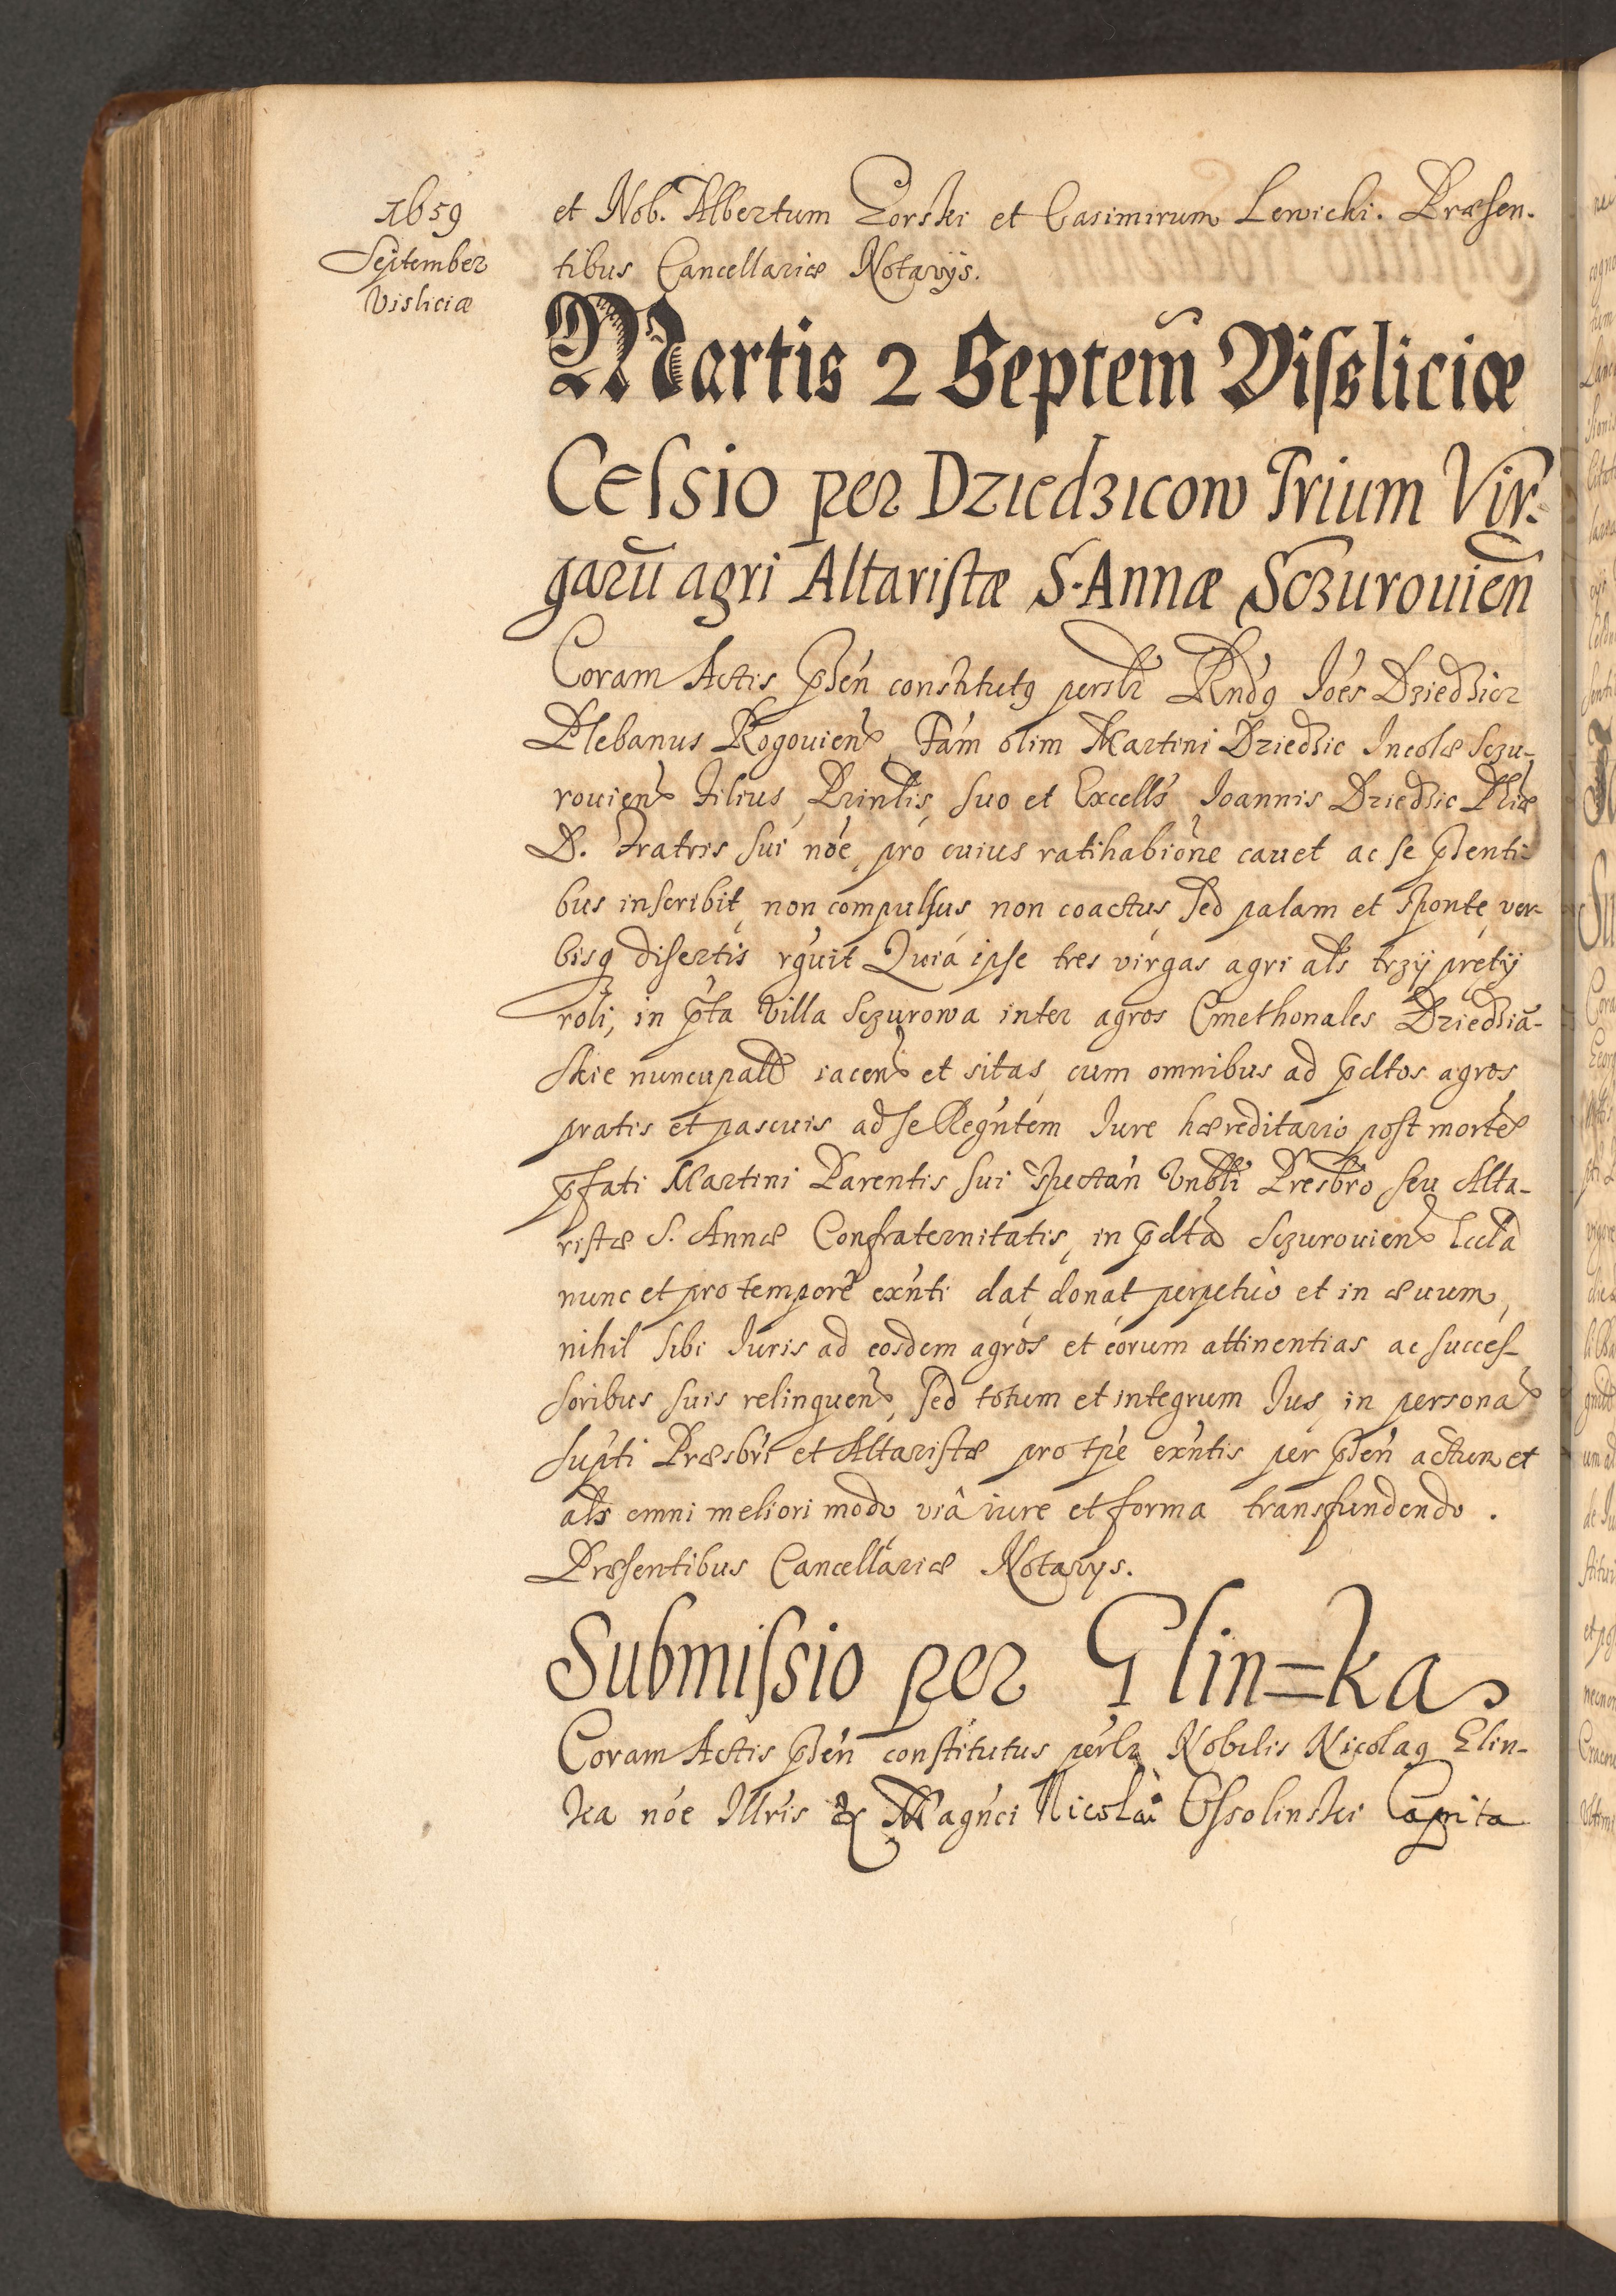 1659
September
Visliciæ
et Nob. Albertum Gorski et Casimirum Lewicki. Præsen-
tibus Cancellariæ Notarijs.
Martis 2 Septem̃ Visśliciæ
Cessio per Dziedzicow Trium Vir-
garũ agri Altaristæ S. Annæ Sczurouien̄
Coram Actis p̃sen constitutq personlr Rndq Joes Dziedzicz
Plebanus Rogouien Fam olim Martini Dziedzic Incolæ Sczu-
rouien Filius, Printis, suo et Excells Joannis Dziedzic Phiæ
D. Fratris sui noe, pro cuius ratihabione cauet ac se p̃senti-
bus inscribit, non compulsus non coactus, sed palam et sponte, ver-
bisq disertis rguit Quia ipse tres virgas agri als trzy pręty
roli, in p̃ta Villa Sczurowa inter agros Cmethonales Dziedzia-
skie nuncupatt iacen et sitas, cum omnibus ad p̃dtos agros
pratis et pascuis ad se Regntem Iure hæreditario post morte
p̃fati Martini Parentis sui spectan Vnbli Presbro seu Alta-
ristæ S. Annæ Confraternitatis, in p̃dta Sczurouien Eccla
nunc et pro tempore exnti dat, donat perpetuò et in æuum,
nihil sibi Iuris ad eosdem agros et eorum attinentias ac succes-
soribus suis relinquen, sed totum et integrum Ius, in persona
supti Præsbri et Altaristæ pro tpe exntis per p̃sen actum et
als omni meliori modo viâ iure et forma transfundendo.
Præsentibus Cancellariæ Notarys.
Submissio per Glin=ka
Coram Actis p̃sen constitutus perlr Nobilis Nicolaq Glin-
ka noe Illris & Magnci Nicolai Ossolinski Capita